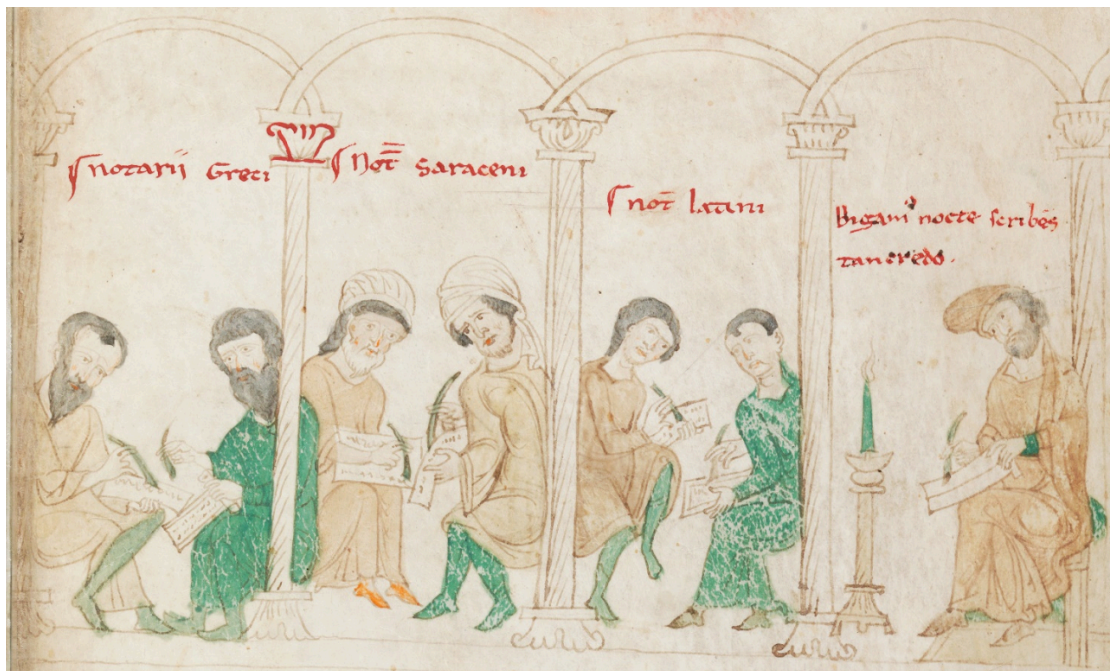 notarii Greci
Not̄ Saraceni
not̄ latini
Bigami᷒ nocte scribēs
tancredo.